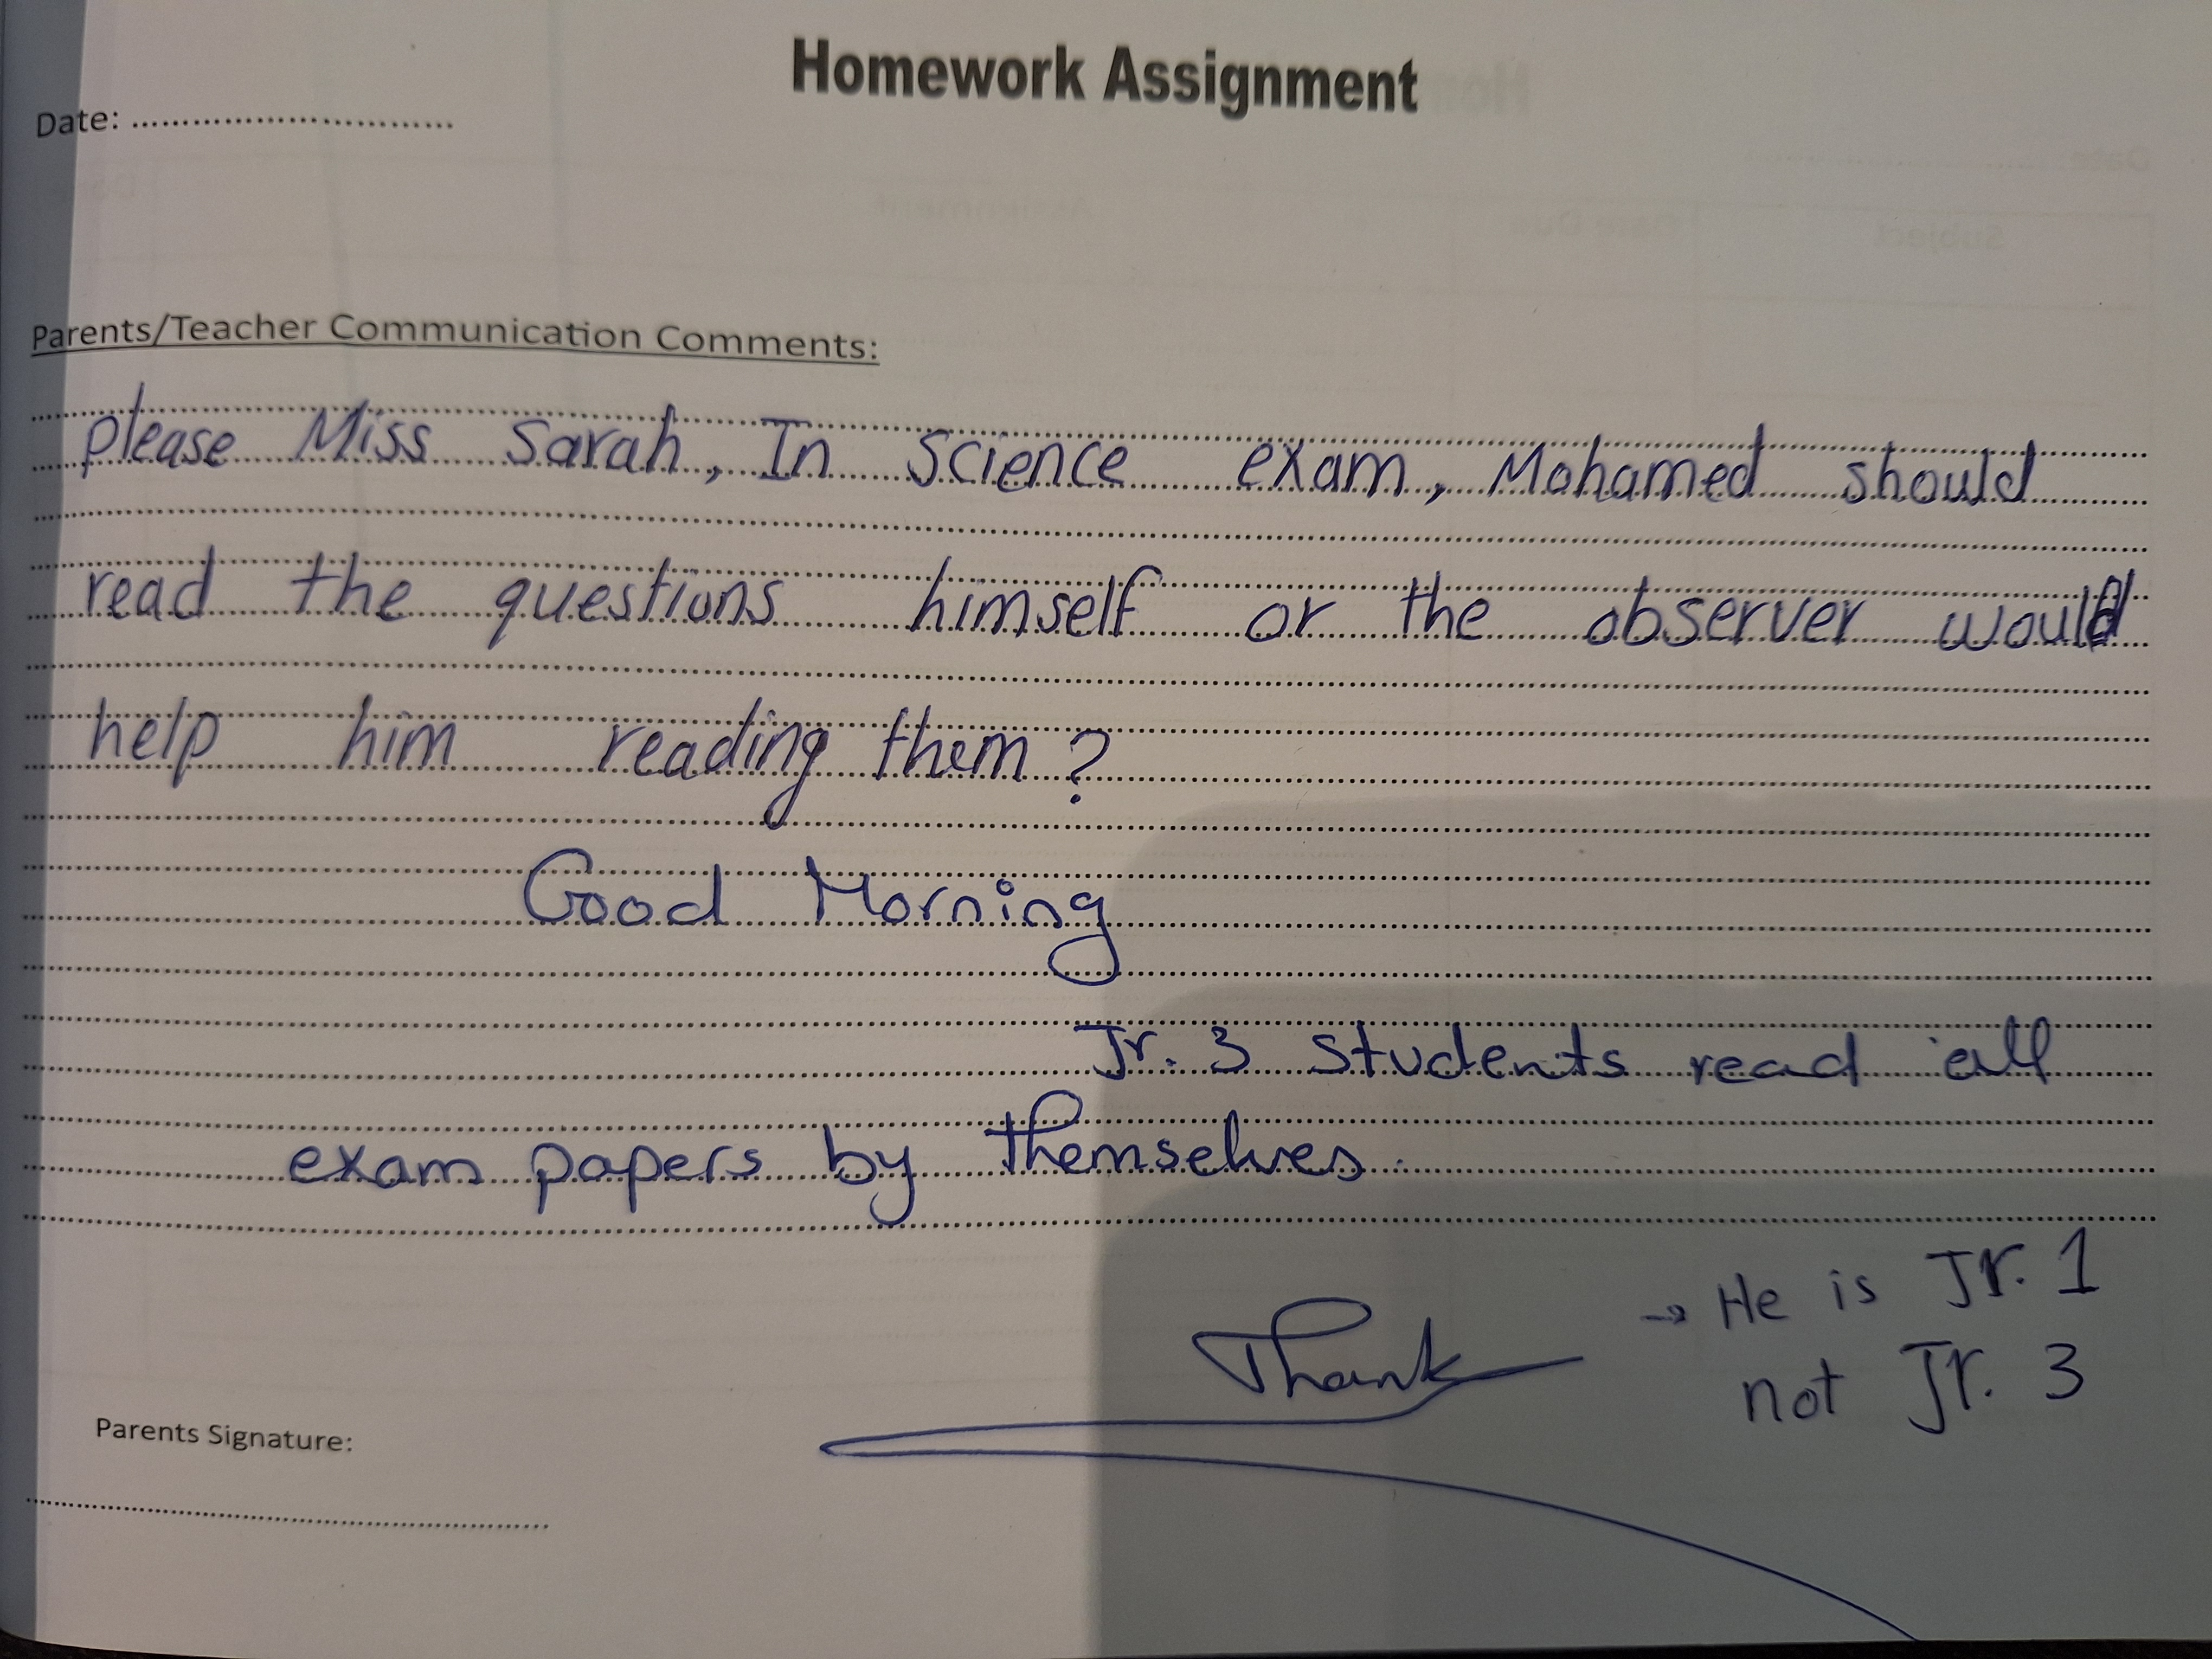 Homework Assignment
Date: ................................
Parents/Teacher Communication Comments:
please Miss Sarah, In Science exam, Mohamed should
read the questions himself or the observer would
help him reading them?
Good Morning
Jr. 3 students read all
exam papers by themselves.
Thank
→ He is Jr. 1
not Jr. 3
Parents Signature: